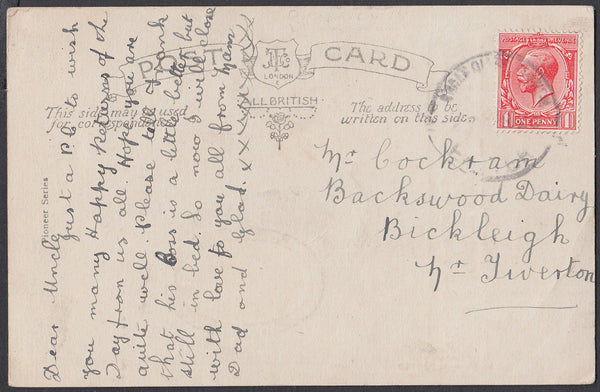 POST CARD
LONDON
ALL BRITISH
This side may be used
for correspondence
The address to be
written on this side.
Pioneer Series
POSTAGE REVENUE
ONE PENNY
1 1
Dear Uncle
Just a P.C. to wish
you many Happy Returns of the
Day from us all. Hope you are
quite well. Please tell
that his Boss is a little better but
still in bed. So now I will close
with love to you all from Mam
Dad and Glad. xx xxxxxxxx
Mr Cockram
Backswood Dairy
Bickleigh
Nr Tiverton